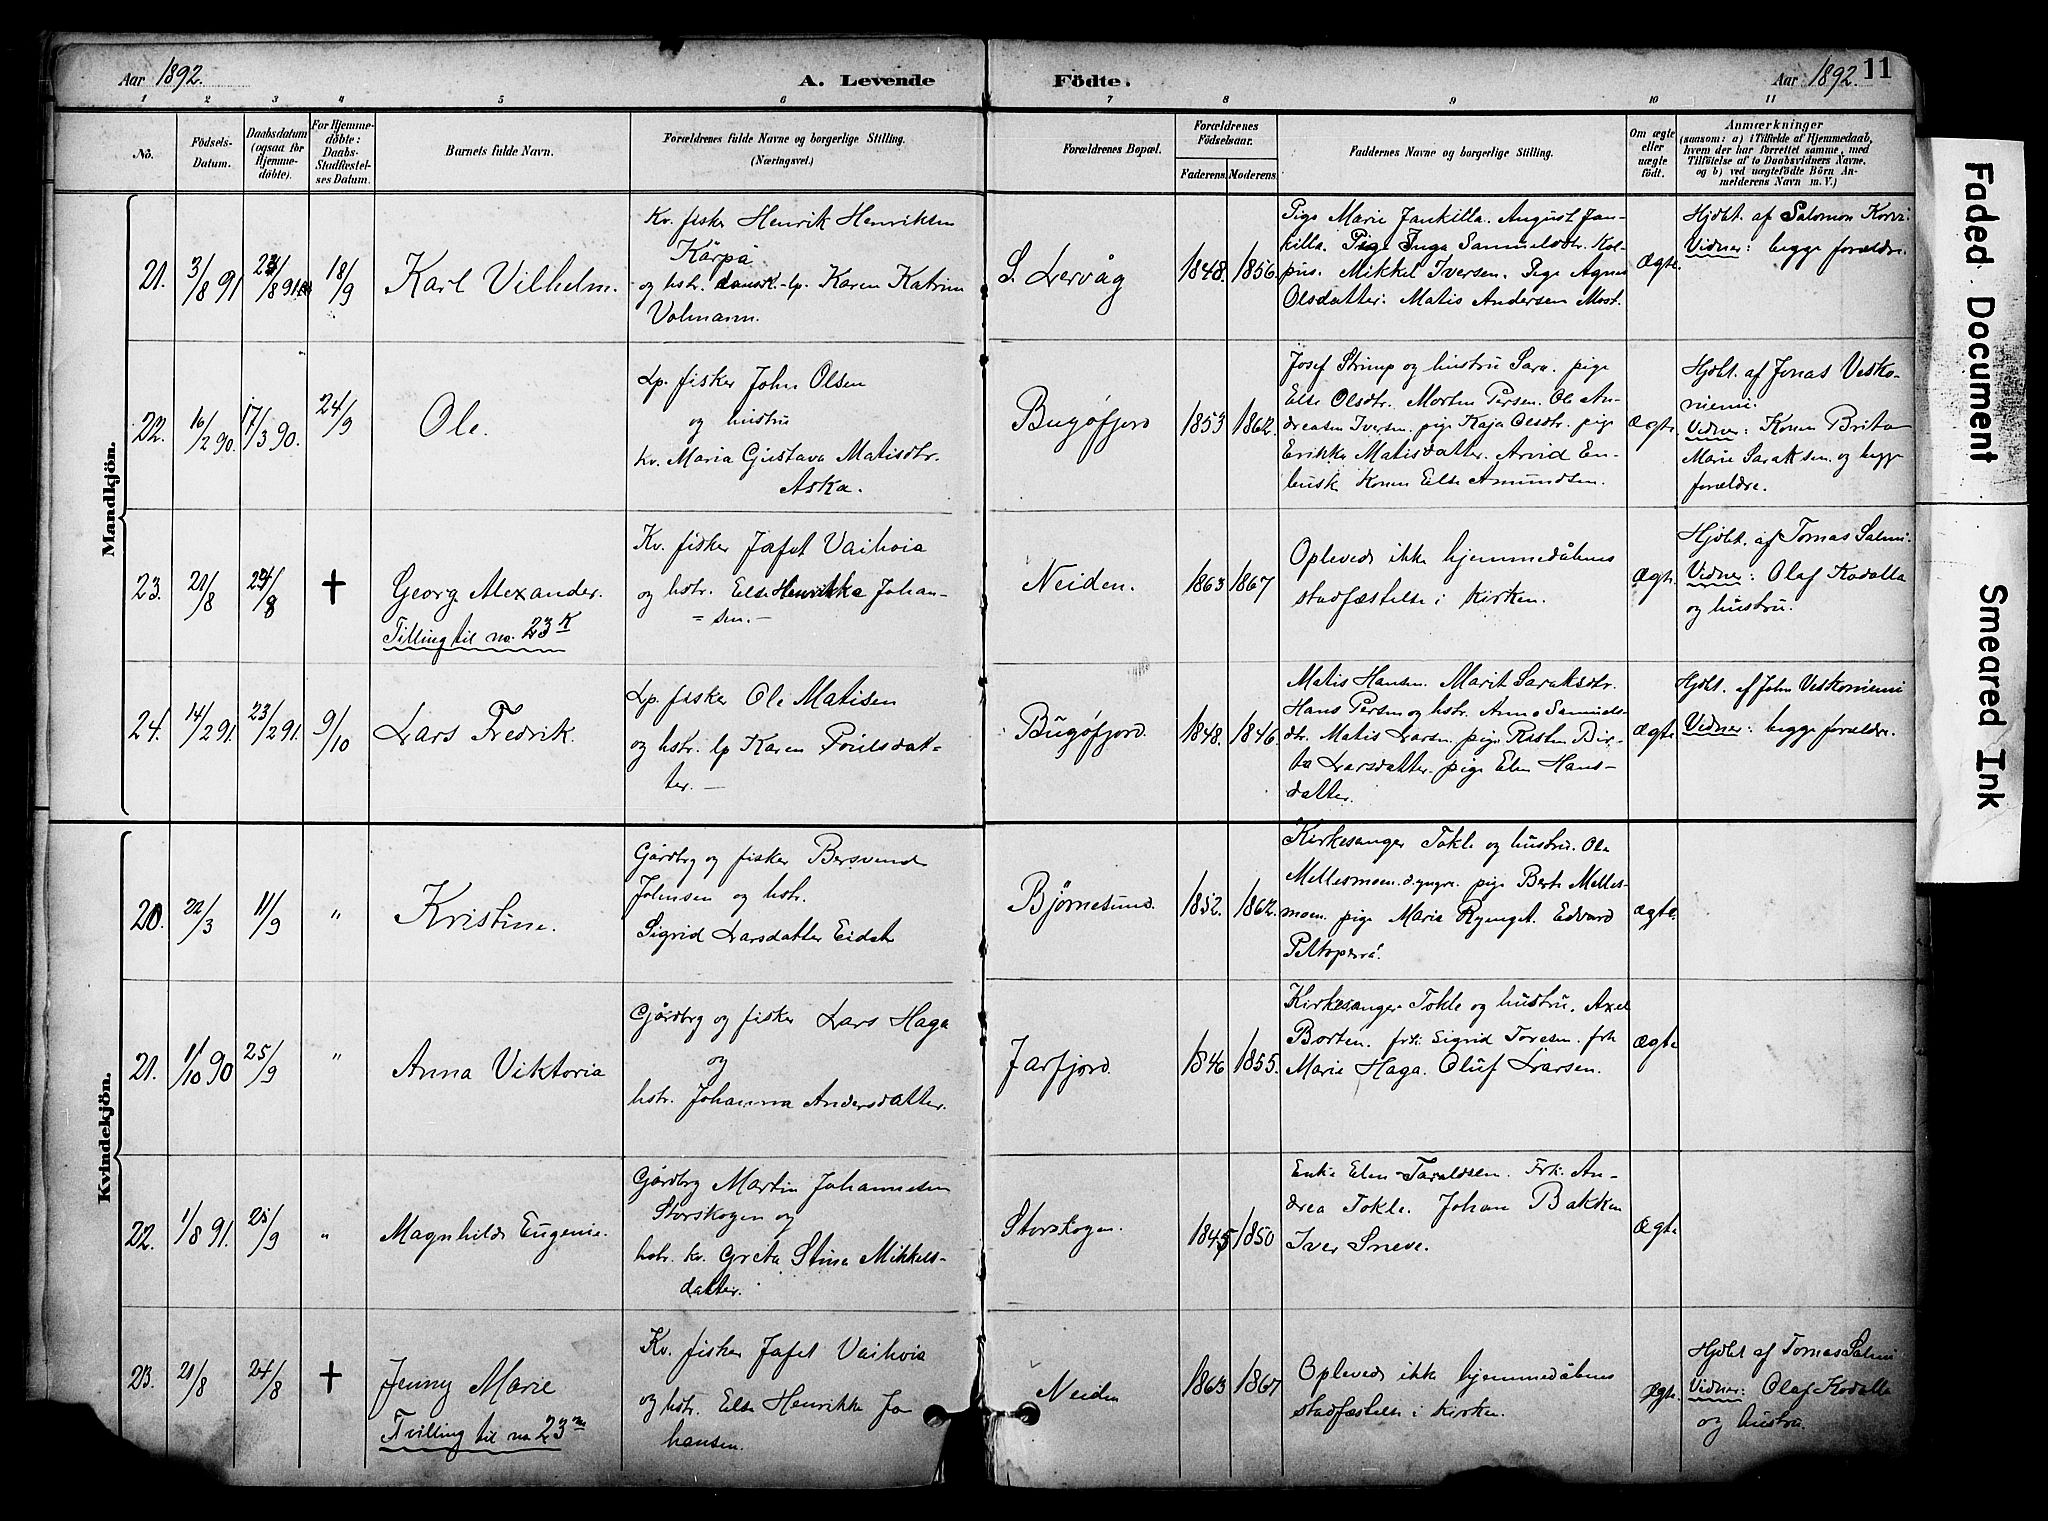 Aar 1892.
A. Levende Födte.
Aar 1892. 11
1 2 3 4 5 6 7 8 9 10 11
No.
Födsels-Datum.
Daabsdatum (ogsaa for Hjemme-döbte).
For Hjemme-döbte: Daabs-Stadfæstel-ses Datum.
Barnets fulde Navn.
Forældrenes fulde Navne og borgerlige Stilling. (Næringsvei.)
Forældrenes Bopæl.
Forældrenes Födselsaar.
Faderens. Moderens.
Faddernes Navne og borgerlige Stilling.
Om ægte eller uægte födt.
Anmærkninger
(saasom: a) i Tilfælde af Hjemmedaab, hvem der har forrettet samme, med Tilföielse af to Daabsvidners Navne, og b) ved uægtefödte Börn An-melderens Navn m. V.)
Mandkjön.
21. 3/8 91 18/9 Karl Vilhelm.
Kv. fisker Henrik Henriksen
Kärpä
og hstr. dansk-lp. Karen Katrine
Volmann.
S. Lervåg 1848. 1856.
Pige Marie Jankilla. August Jan-
killa. Pige Inga Sammelsdtr. Kol-
pus. Mikkel Iversen. Pige Agnes
Olsdatter. Matis Andersen Most.
Ægte.
Hjdbt. af Salomon Korvi.
Vidner: begge forældre.
22. 16/2 90. 17/3 90. 24/9 Ole.
Lp. fisker John Olsen
og hustru
kv. Maria Gustava Matisdtr.
Aska.
Bugøfjord 1853 1862.
Josef Strimp og hustru Sara. pige
Else Olsdtr. Morten Persen. Ole An-
dreasen Iversen. pige Kaja Olsdtr. pige
Erikka Matisdatter. Arvid En-
busk Konen Else Amundsen.
Ægte.
Hjdbt. af Jonas Vesko-
niemi.
Vidner: Konen Brita
Marie Saraksen. og begge
forældre.
23. 21/8 24/8 † Georg Alexander.
Tilling til no. 23 K
Kv. fisker Jafet Vaihoia
og hstr. Else Henrikka Johan-
= sen.-
Neiden. 1863 1867
Opleved ikke hjemmedåbens
stadfæstelse i kirken.
Ægte.
Hjdbt. af Tomas Salmi.
Vidner: Olaf Kodalla
og hustru.
24. 14/2 91. 23/2 91. 9/10 Lars Fredrik.
Lp. fisker Ole Matisen
og hstr. lp Karen Poulsdat-
ter.-
Bugøfjord. 1848. 1846.
Matis Hansen. Marit Saraksdtr.
Hans Persen og hstr. Anne Samuels-
dtr. Matis Larsen. pige Kirsten Bir-
ta Larsdatter. pige Elen Hans-
datter.
Ægte
Hjdbt. af John Veskoniemi
Vidner: begge forældre.
Kvindekjön.
20. 22/3 11/9 " Kristine.
Gårdbrg og fisker Bersvend
Johnsen og hstr.
Sigrid Larsdatter Eidet
Bjørnesund. 1852. 1862.
Kirkesanger Tokle og hustru. Ole
Mellesmoen. pige Berte Melles-
moen. pige Marie Rynget. Edvard
Peltoperä.
Ægte.
21. 1/10 90 25/9 " Anna Viktoria
Gårdbrg og fisker Lars Haga
og
hstr. Johanna Andersdatter.
Jarfjord. 1846 1855.
Kirkesanger Tokle og hustru. Axel
Borten. frk. Sigrid Toresen. frk
Marie Haga. Oluf Larsen.
Ægte
22. 1/8 91. 25/9 " Magnhild Eugenie.
Gårdbrg Martin Johannesen
Storskogen og
hstr. kv. Greta Stina Mikkels-
datter.
Storskogen. 1845 1850
Enke Elen Taraldsen. Frk. An-
drea Tokle. Johan Bakken
Iver Sneve.
Ægte
23. 21/8 24/8 † Jenny Marie
Tvilling til no 23 m
Kv. fisker Jafet Vaihoia
og hstr. Else Henrikke Jo
hansen.
Neiden 1863 1867
Opleved ikke hjemmedåbens
stadfæstelse i kirken.
Ægte.
Hjdbt af Tomas Salmi
Vidner: Olaf Kodalla
og hustru.
Faded Document
Smeared Ink